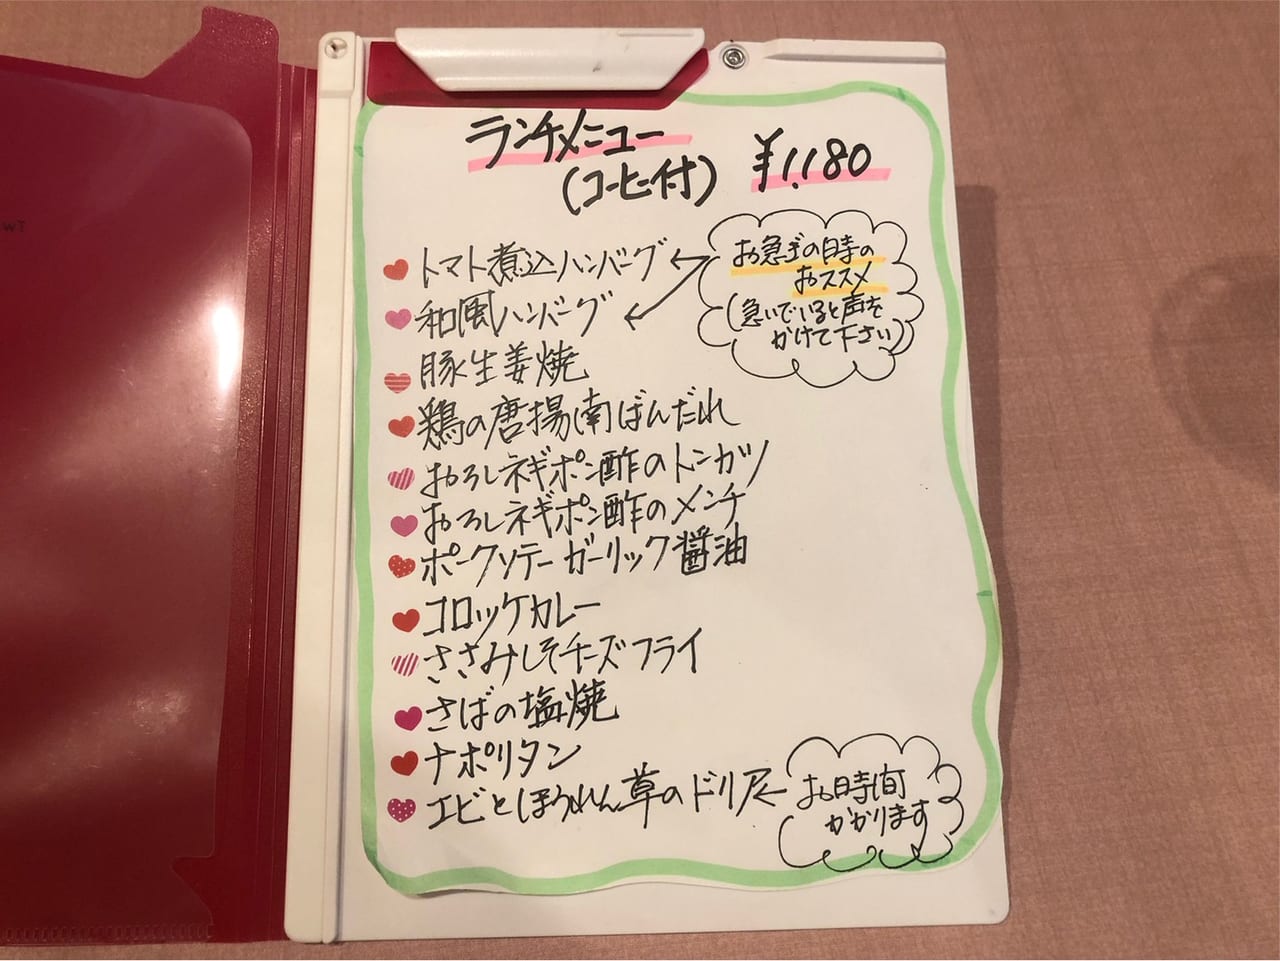 ランチメニュー
(コーヒー付)
¥1,180
トマト煮込ハンバーグ
和風ハンバーグ
お急ぎの時の
おススメ
(急いでいると声を
かけて下さい)
豚生姜焼
鶏の唐揚南ばんだれ
おろしネギポン酢のトンカツ
おろしネギポン酢のメンチ
ポークソテーガーリック醤油
コロッケカレー
ささみしそチーズフライ
さばの塩焼
ナポリタン
エビとほうれん草のドリア
お時間
かかります